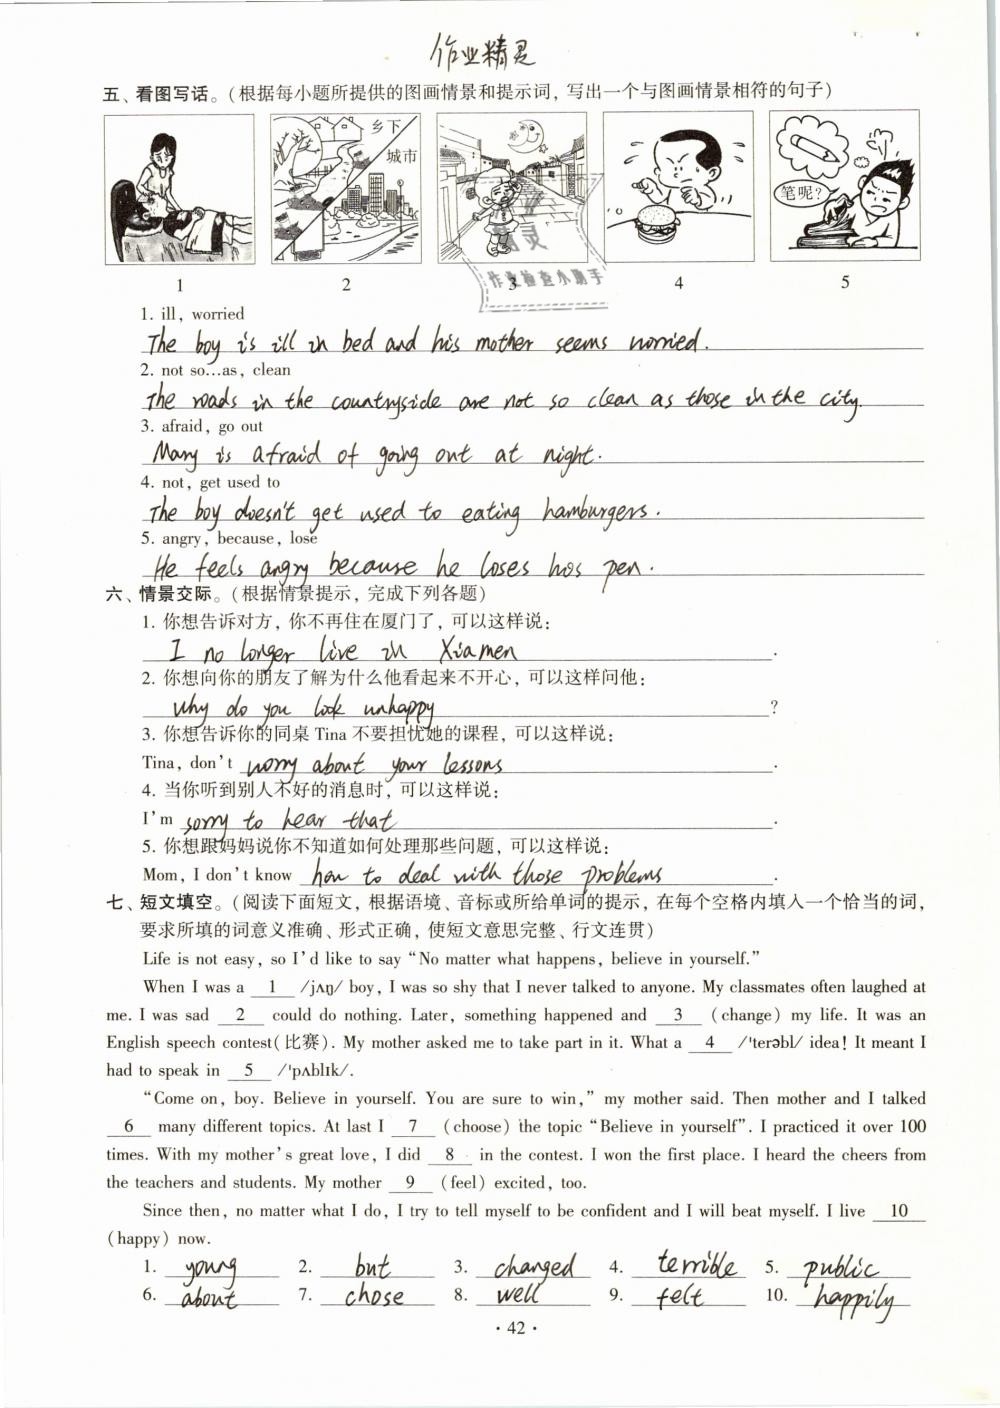 作业精灵
五、看图写话。(根据每小题所提供的图画情景和提示词，写出一个与图画情景相符的句子)
乡下
城市
笔呢?
灵
作业检查小助手
1 2 3 4 5
1. ill, worried
The boy is ill in bed and his mother seems worried.
2. not so…as, clean
The roads in the countryside are not so clean as those in the city.
3. afraid, go out
Mary is afraid of going out at night.
4. not, get used to
The boy doesn't get used to eating hamburgers.
5. angry, because, lose
He feels angry because he loses his pen.
六、情景交际。(根据情景提示，完成下列各题)
1. 你想告诉对方，你不再住在厦门了，可以这样说：
I no longer live in Xiamen.
2. 你想向你的朋友了解为什么他看起来不开心，可以这样问他：
Why do you look unhappy?
3. 你想告诉你的同桌 Tina 不要担忧她的课程，可以这样说：
Tina, don't worry about your lessons.
4. 当你听到别人不好的消息时，可以这样说：
I'm sorry to hear that.
5. 你想跟妈妈说你不知道如何处理那些问题，可以这样说：
Mom, I don't know how to deal with those problems.
七、短文填空。(阅读下面短文，根据语境、音标或所给单词的提示，在每个空格内填入一个恰当的词，
要求所填的词意义准确、形式正确，使短文意思完整、行文连贯)
Life is not easy, so I'd like to say "No matter what happens, believe in yourself."
When I was a 1 /jʌŋ/ boy, I was so shy that I never talked to anyone. My classmates often laughed at
me. I was sad 2 could do nothing. Later, something happened and 3 (change) my life. It was an
English speech contest(比赛). My mother asked me to take part in it. What a 4 /'terəbl/ idea! It meant I
had to speak in 5 /'pʌblɪk/.
"Come on, boy. Believe in yourself. You are sure to win," my mother said. Then mother and I talked
6 many different topics. At last I 7 (choose) the topic "Believe in yourself". I practiced it over 100
times. With my mother's great love, I did 8 in the contest. I won the first place. I heard the cheers from
the teachers and students. My mother 9 (feel) excited, too.
Since then, no matter what I do, I try to tell myself to be confident and I will beat myself. I live 10
(happy) now.
1. young 2. but 3. changed 4. terrible 5. public
6. about 7. chose 8. well 9. felt 10. happily
·42·